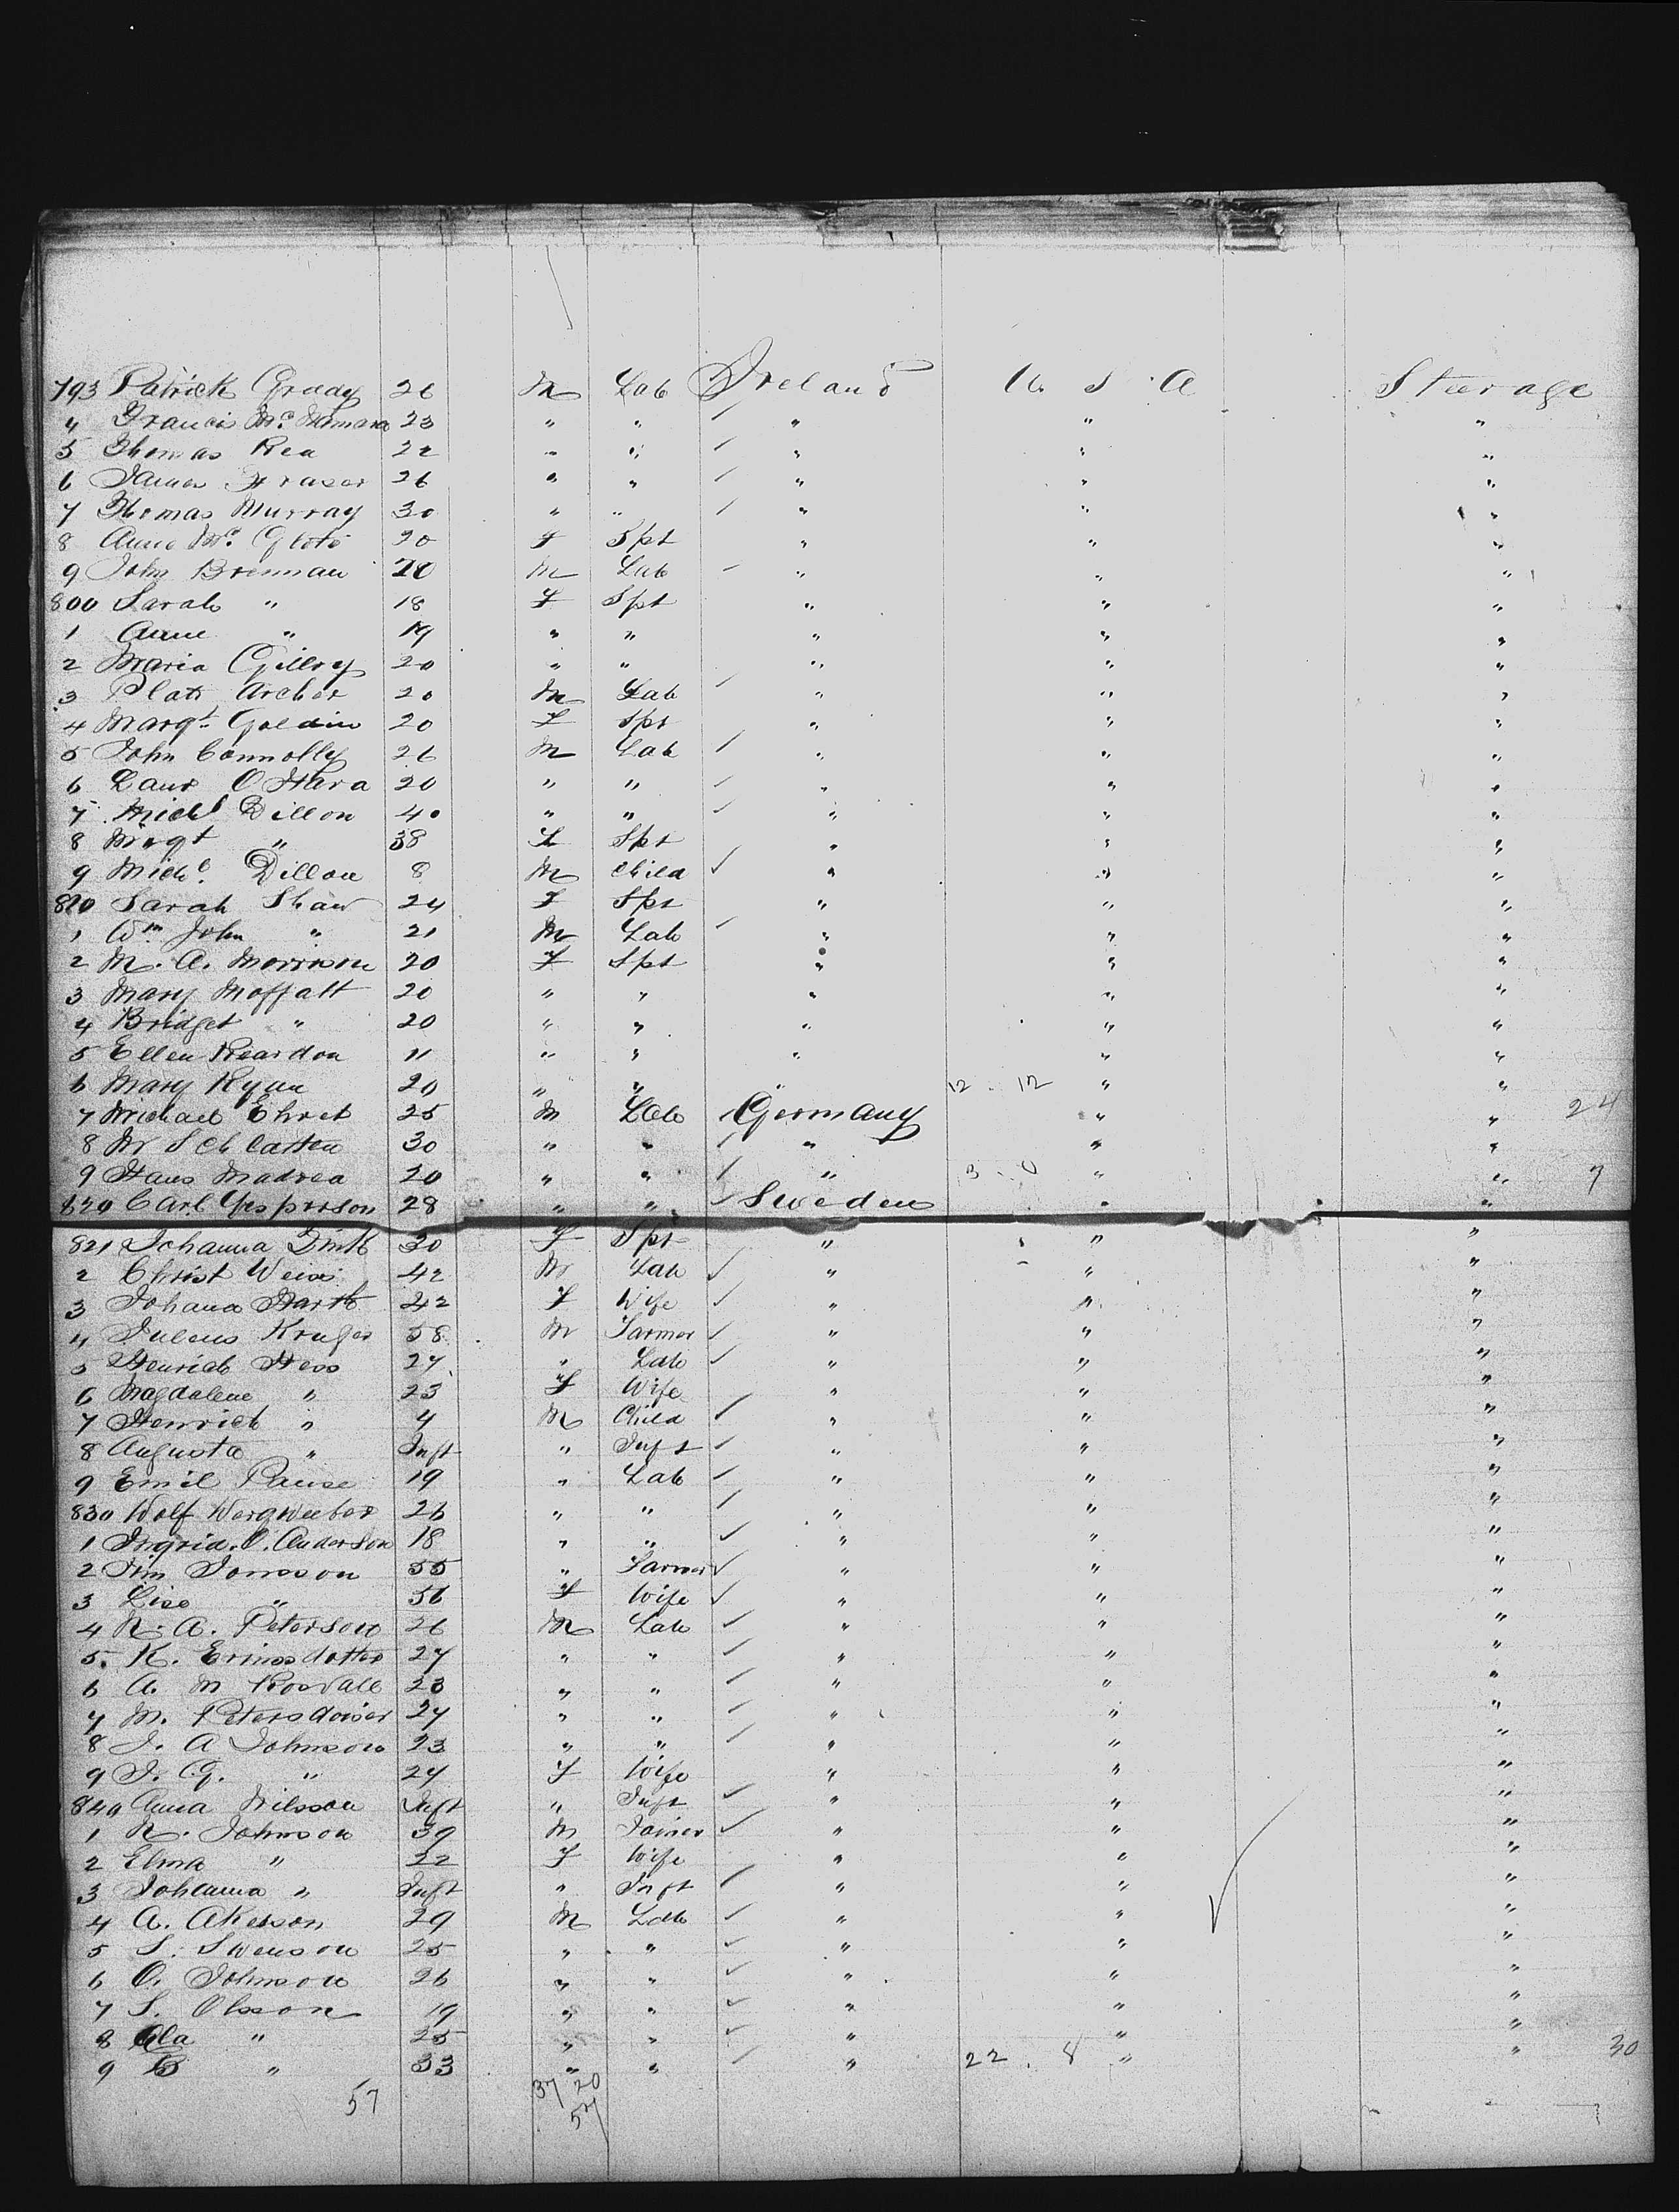 793 Patrick Grady 26 M Lab Ireland U S A Steerage
4 Francis Mc Namara 23 " " " " "
5 Thomas Rea 22 " " " " "
6 James Fraser 26 " " " " "
7 Thomas Murray 30 " " " " "
8 Anne Mc 20 F Spt " " "
9 John Brennan 20 M Lab " " "
800 Sarah " 18 F Spt " " "
1 Anne " 19 " " " " "
2 Maria Gillroy 20 " " " " "
3 Archer 20 M Lab " " "
4 Margt 20 F Spt " " "
5 John Connolly 26 M Lab " " "
6 Laur O Hara 20 " " " " "
7 Michl Dillon 40 " " " " "
8 Mrgt " 38 F Spt " " "
9 Michl. Dillon 8 M Child " " "
810 Sarah Shaw 24 F Spt " " "
1 Wm John " 21 M Lab " " "
2 M. A. Morrison 20 F Spt " " "
3 Mary Moffatt 20 " " " " "
4 Bridget " 20 " " " " "
5 Ellen Reardon 11 " " " " "
6 Mary Ryan 20 " " " 12 . 12 " "
7 Michael Ehret 25 M Lab Germany " " 24
8 M 30 " " " " "
9 Hans Madrea 20 " " " 3 . 0 " "
820 Carl 28 " " Sweden " "
821 Johanna 30 F Spt " " "
2 Christ Weiss 42 M Lab " " "
3 Johana 42 F Wife " " "
4 Kruger 58 M Farmer " " "
5 Henrich Hess 27 " Lab " " "
6 Magdalene " 23 F Wife " " "
7 Henrich " 4 M Child " " "
8 Augusta " Inft " Inft " " "
9 Emil Pause 19 " Lab " " "
830 Wolf 26 " " " " "
1 Ingrid. O. Anderson 18 " " " " "
2 Jonsson 55 " Farmer " " "
3 Lise " 56 F Wife " " "
4 N. A. Peterson 26 M Lab " " "
5. K. 27 " " " " "
6 A. M 23 " " " " "
7 M. 27 " " " " "
8 J. A Johnson 23 " " " " "
9 J. G. " 27 F Wife " " "
840 Anna Nilsson Inft " Inft " " "
1 N. Johnson 39 M Joiner " " "
2 Elma " 22 F Wife " " "
3 Johanna " Inft " Inft " " "
4 A. Akesson 29 M Lab " " "
5 S. Swenson 25 " " " " "
6 O. Johnson 26 " " " " "
7 S. Olsson 19 " " " " "
8 Ola " 25 " " " " "
9 B " 33 " " " 22 . 8 " " 30
57 37 20
57